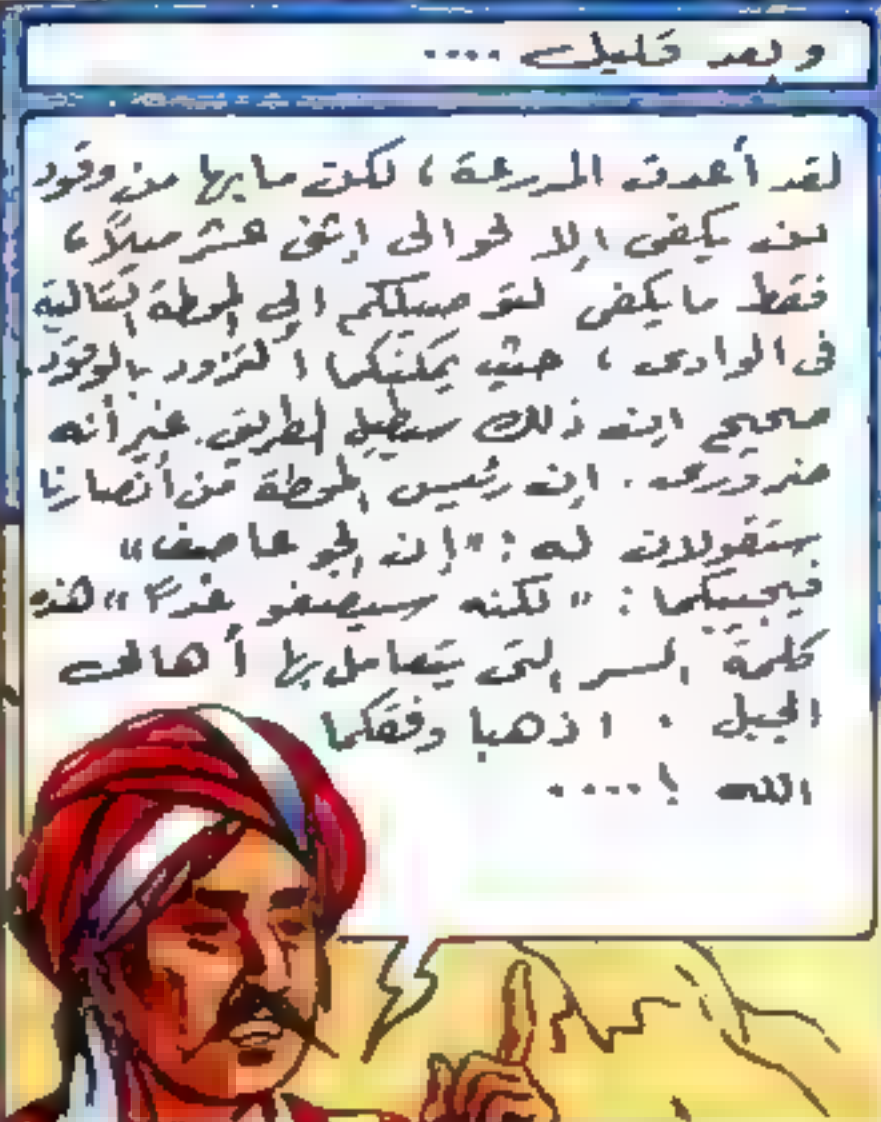 و بعد قليل ....
لقد أعدت المدرعة ، لكن ما بها من وقود
لن يكفى إلا لحوالى إثنى عشر ميلاً ،
فقط ما يكفى لتوصيلكم إلى المحطة التالية
فى الوادى ، حيث يمكنكما التزود بالوقود.
صحيح إن ذلك سيطيل الطريق. غير أنه
ضرورى . إن رئيس المحطة من أنصارنا
ستقولان له : "إن الجو عاصف"
فيجيبكما : "لكنه سيصفو غداً" هذه
كلمة السر التى يتعامل بها أهالى
الجبل . اذهبا وفقكما
الله !....